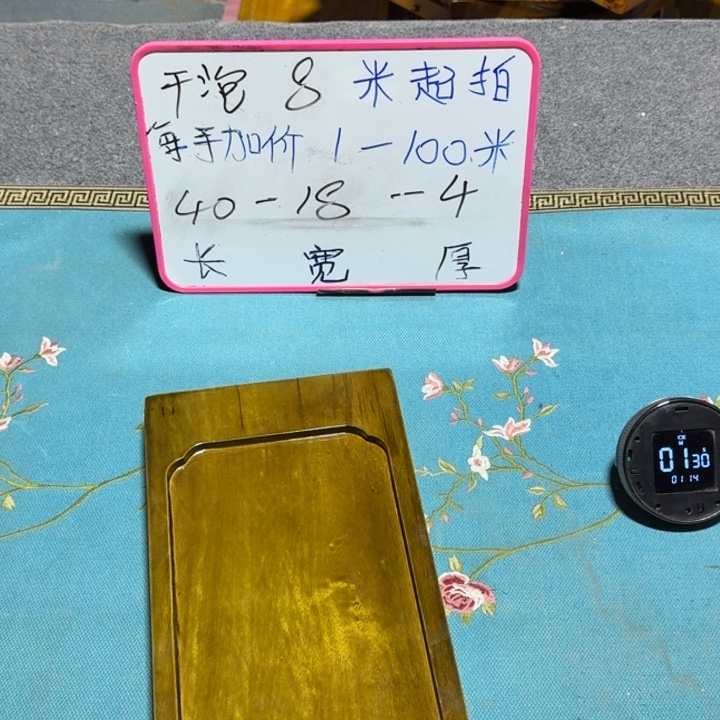 干泡 8 米起拍
每手加价 1-100米
40-18--4
长 宽 厚
0130
0114